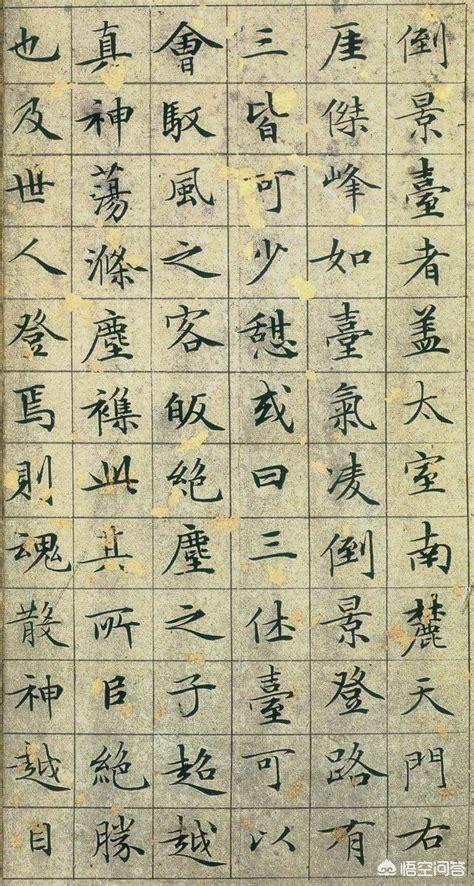 倒景臺者盖太室南麓天門右
厓傑峰如臺氣凌倒景登路有
三皆可少憇或曰三休臺可以
會馭風之客皈絶塵之子超越
真神蕩滌塵襍此其所㠯絶勝
也及世人登焉則魂散神越目
悟空问答